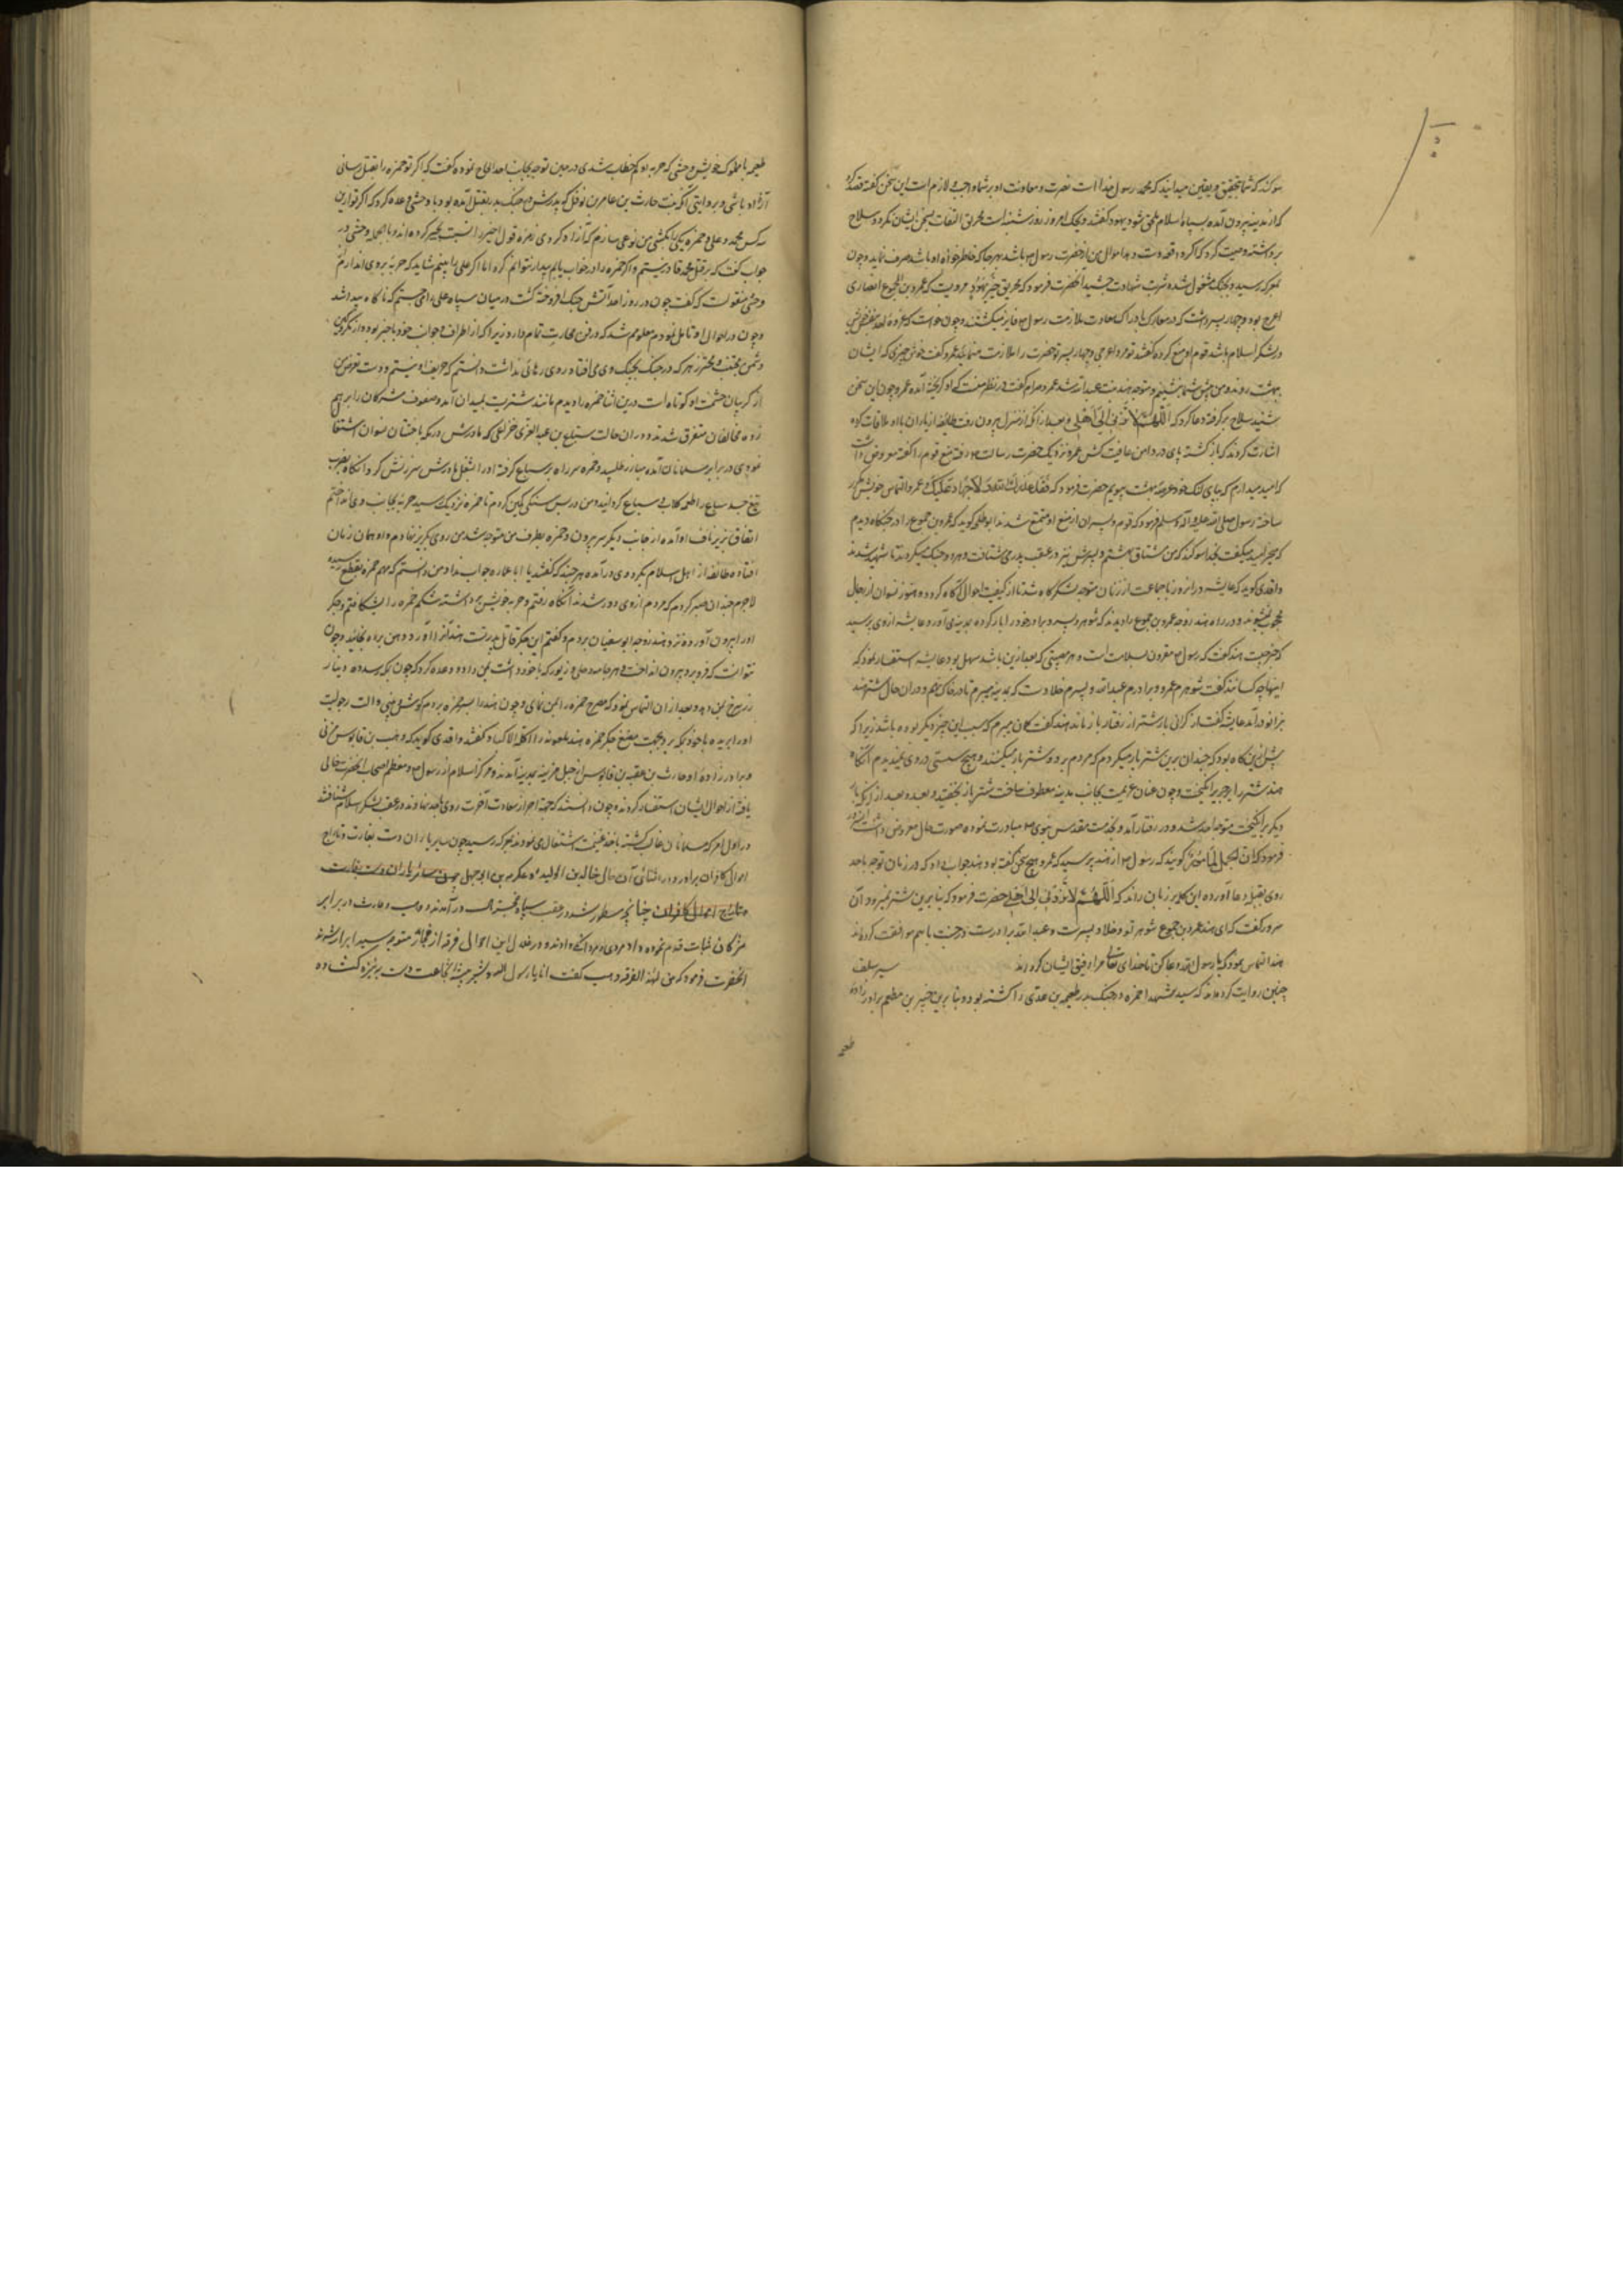 سوکند که شما بتحقیق و یقین میدانید که محمد رسول خداست نصرت و معاونت او بر شما واجب و لازم است این سخن گفته قصد کرد
که از مدینه بیرون آمده بسپاه اسلام ملحق شود یهود گفتند و بجنگ امروز روز شنبه است مخریق التفات بسخن ایشان نکرد و سلاح
برداشته وصیت کرد که اموال من از حضرت رسول باشد بهر جا که خاطر خواه او باشد صرف نماید و چون
بمعرکه رسید و بجنگ مشغول شده شربت شهادت چشید آنحضرت فرمود که مخریق خیر یهود و مرویست که عمرو بن الجموح انصاری
اعرج بود و چهار پسر داشت که در معارک بادراک سعادت ملازمت رسول فایز میکشتند و چون خواست که غزوهٔ احد
در لشکر اسلام باشد قوم او منع کرده گفتند تو مرد اعرجی و چهار پسر تو حضرت را ملازمت مینمایند عمرو گفت خوش چیزی که ایشان
بهشت روند و من پیش شما بنشینم و متوجه هند بنت عبدالله شد عمرو حرام گفت در نظر منست که او کریخته آمده عمرو چون این سخن
شنید سلاح برگرفته دعا کرد که اللهم لا تردنی الی اهلی و بعد از آنکه از منزل بیرون رفت طایفه از یاران با او ملاقات کرده
اشارت کردند که بازگشته پای در دامن عافیت کش عمرو نزدیک حضرت رسالت رفته منع قوم را گفته معروض داشت
که امید میدارم که بپای لنک خود عرصهٔ بهشت بپویم حضرت فرمود که فقد عذرک الله و لا جهاد علیک عمرو التماس خویش مکرر
ساخته رسول صلی الله علیه و آله و سلم فرمود که قوم و پسران از منع او ممتنع شدند ابوطلحه کوید که عمرو بن جموح را در جنگاه دیدم
که میخرامید میگفت بخدا سوکند که من مشتاق بهشتم و پسرش نیز در عقب پدر می شتافت و هر دو جنک میکردند تا شهید شدند
واقدی کوید که عایشه در آنروز با جماعت از زنان متوجه لشکرگاه شد تا از کیفیت احوال آگاه کردد و هنوز نسوان از رجال
محجوب نمیشدند و در راه هند زوجه عمرو بن جموح را دیدند که شوهر و پسر و برادر خود را بار کرده بمدینه می آورد عایشه از وی پرسید
که خبر چیست هند گفت که رسول مقرون بسلامت است و هر مصیبتی که بعد ازین باشد سهل بود عایشه استفسار نمود که
اینها چه کسانند گفت شوهرم عمرو و برادرم عبدالله و پسرم خلاد است که بمدینه میبرم تا در خاک نهم و در آن حال شتر هند
بزانو درآمد عایشه گفت از گرانی بار شتر از رفتار باز ماند هند گفت گمان میبرم که سبب این چیز دیگر بوده باشد زیرا که
پیش ازین گاه بود که چندان برین شتر بار میکردم که مردم بر دو شتر بار میکنند و هیچ سستی در وی نمیدیدم آنگاه
هند شتر را بزجر برانگیخت و چون عنان عزیمت بجانب مدینه معطوف ساخت شتر باز بخفتید و بعد از آنکه بار
دیگر برانگیخت متوجه احد شد و در رفتار آمد و بخدمت مقدس نبوی مبادرت نموده صورت حال معروض داشت
فرمود که ان الجمل لمامور گویند که رسول از هند پرسید که عمرو هیچ سخن گفته بود هند جواب داد که در زمان توجه باحد
روی بقبلهٔ دعا آورده این کلمه بر زبان راند که اللهم لا تردنی الی اهلی حضرت فرمود که بنابرین شتر نمیرود آن
سرور گفت که ای هند عمرو بن جموح شوهر تو و خلاد پسرت و عبدالله برادرت در جنت با هم موافقت کرده اند
هند التماس نمود که یا رسول الله دعا کن تا خدای تعالی مرا رفیق ایشان کرداند سیر سلف
چنین روایت کرده اند که سید الشهدا حمزه در جنک بدر طعیمه بن عدی را کشته بود و بنابرین جبیر بن مطعم برادر زادهٔ
طعیمه
طعیمه با مملوک خویش وحشی که حربه او کم خطا شدی در حین توجه بجانب احد الحاح نموده گفت که اگر تو حمزه را بقتل رسانی
آزاد باشی و بروایتی آنکه بنت حارث بن عامر بن نوفل که پدرش در جنک بدر بقتل آمده بود با وحشی وعده کرد که اگر تو ازین
سه کس محمد و علی و حمزه یکی را بکشی من نوعی سازم که آزاد کردی زمره قول اخیر را نسبت بجبیر کرده اند و بالجمله وحشی در
جواب گفت که بر قتل محمد قادر نیستم و اگر حمزه را در خواب یابم بیدار نتوانم کرد اما اگر علی را بینم شاید که حربه بروی اندازم
وحشی منقولست که گفت چون در روز احد آتش جنک افروخته گشت در میان سپاه علی را می جستم که ناگاه پیدا شد
و چون در احوال او تامل نمودم معلومم شد که در فن محاربت تمام دارد زیرا که از اطراف و جوانب خود باخبر بوده از مکر
دشمن مجتنب و محترز هر که در جنک بچنگ وی می افتاد روی رهائی نداشت دانستم که حریف او نیستم و دست تعرض من
از گریبان حشمت او کوتاه است درین اثنا حمزه را دیدم مانند شتر مست بمیدان آمده صفوف مشرکان را بر هم
زده مخالفان متفرق شدند و در آن حالت سباع بن عبدالعزی خزاعی که مادرش در مکه بختان نسوان اشتغال
نمودی در برابر مسلمانان آمده مبارز طلبید و حمزه سر راه بر سباع گرفته او را بشغل مادرش سرزنش کرد و آنگاه بضرب
تیغ جسد سباع را طعمه کلاب و سباع گردانید و من در پس سنگی کمین کردم تا حمزه نزدیک رسید حربه بجانب وی انداختم
اتفاقا بر زیر ناف او آمده از جانب دیگر سر بیرون کرد حمزه بطرف من متوجه شد من روی بگریز نهادم و او همان زمان
افتاده طایفه از اهل اسلام بگرد وی درآمده هر چند که گفتند یا ابا عماره جواب نداد من دانستم که مهم حمزه بقطع رسیده
لاجرم چندان صبر کردم که مردم از وی دور شدند آنگاه رفتم و حربه خویش برداشته شکم حمزه را بشکافتم و جگر
او را بیرون آورده نزد هند زوجه ابوسفیان بردم و گفتم این جگر قاتل پدرتست هند آنرا از من گرفته در دهن برده بخائید و چون
نتوانست که فرو برد بیرون انداخت و هر جامه و حلی و زیور که با خود داشت بمن داد و وعده کرد که چون بمکه رسد ده دینار
زر سرخ بمن دهد و بعد از آن التماس نمود که مصرع حمزه را بمن نمای و چون هند را بسر حمزه بردم گوش و بینی و آلت رجولیت
او را بریده با خود بمکه برد و بجهت مضغ جگر حمزه هند ملعونه را آکلة الاکباد گفتند واقدی گوید که وهب بن قابوس مزنی
و برادر زادهٔ او حارث بن عقبه بن قابوس از جبل مزینه بمدینه آمدند و مرکز اسلام را از رسول و معظم اصحاب آنحضرت خالی
یافته از احوال ایشان استفسار کردند و چون دانستند که جهة احراز سعادت آخرت روی باحد نهادند در عقب لشکر اسلام شتافتند
در اول امر که مسلمانان غالب گشته باخذ غنیمت اشتغال می نمودند بمعرکه رسید چون سایر یاران دست بغارت و تاراج
اموال کافران برآوردند در اثنای آن حال خالد بن الولید و عکرمه بن ابوجهل چون سائر یاران دست بغارت
و تاراج اموال کافران چنانچه مسطور شد در عقب سپاه درآمدند و وهب و حارث در برابر
مشرکان ثبات قدم نموده داد مردی و مردانگی دادند و در خلال این احوال فرقه از فجار متوجه سید ابرار شدند
آنحضرت فرمود که من لهذا الفرقه وهب گفت انا یا رسول الله و شیر بیشهٔ شجاعت دست به تیر کشاده